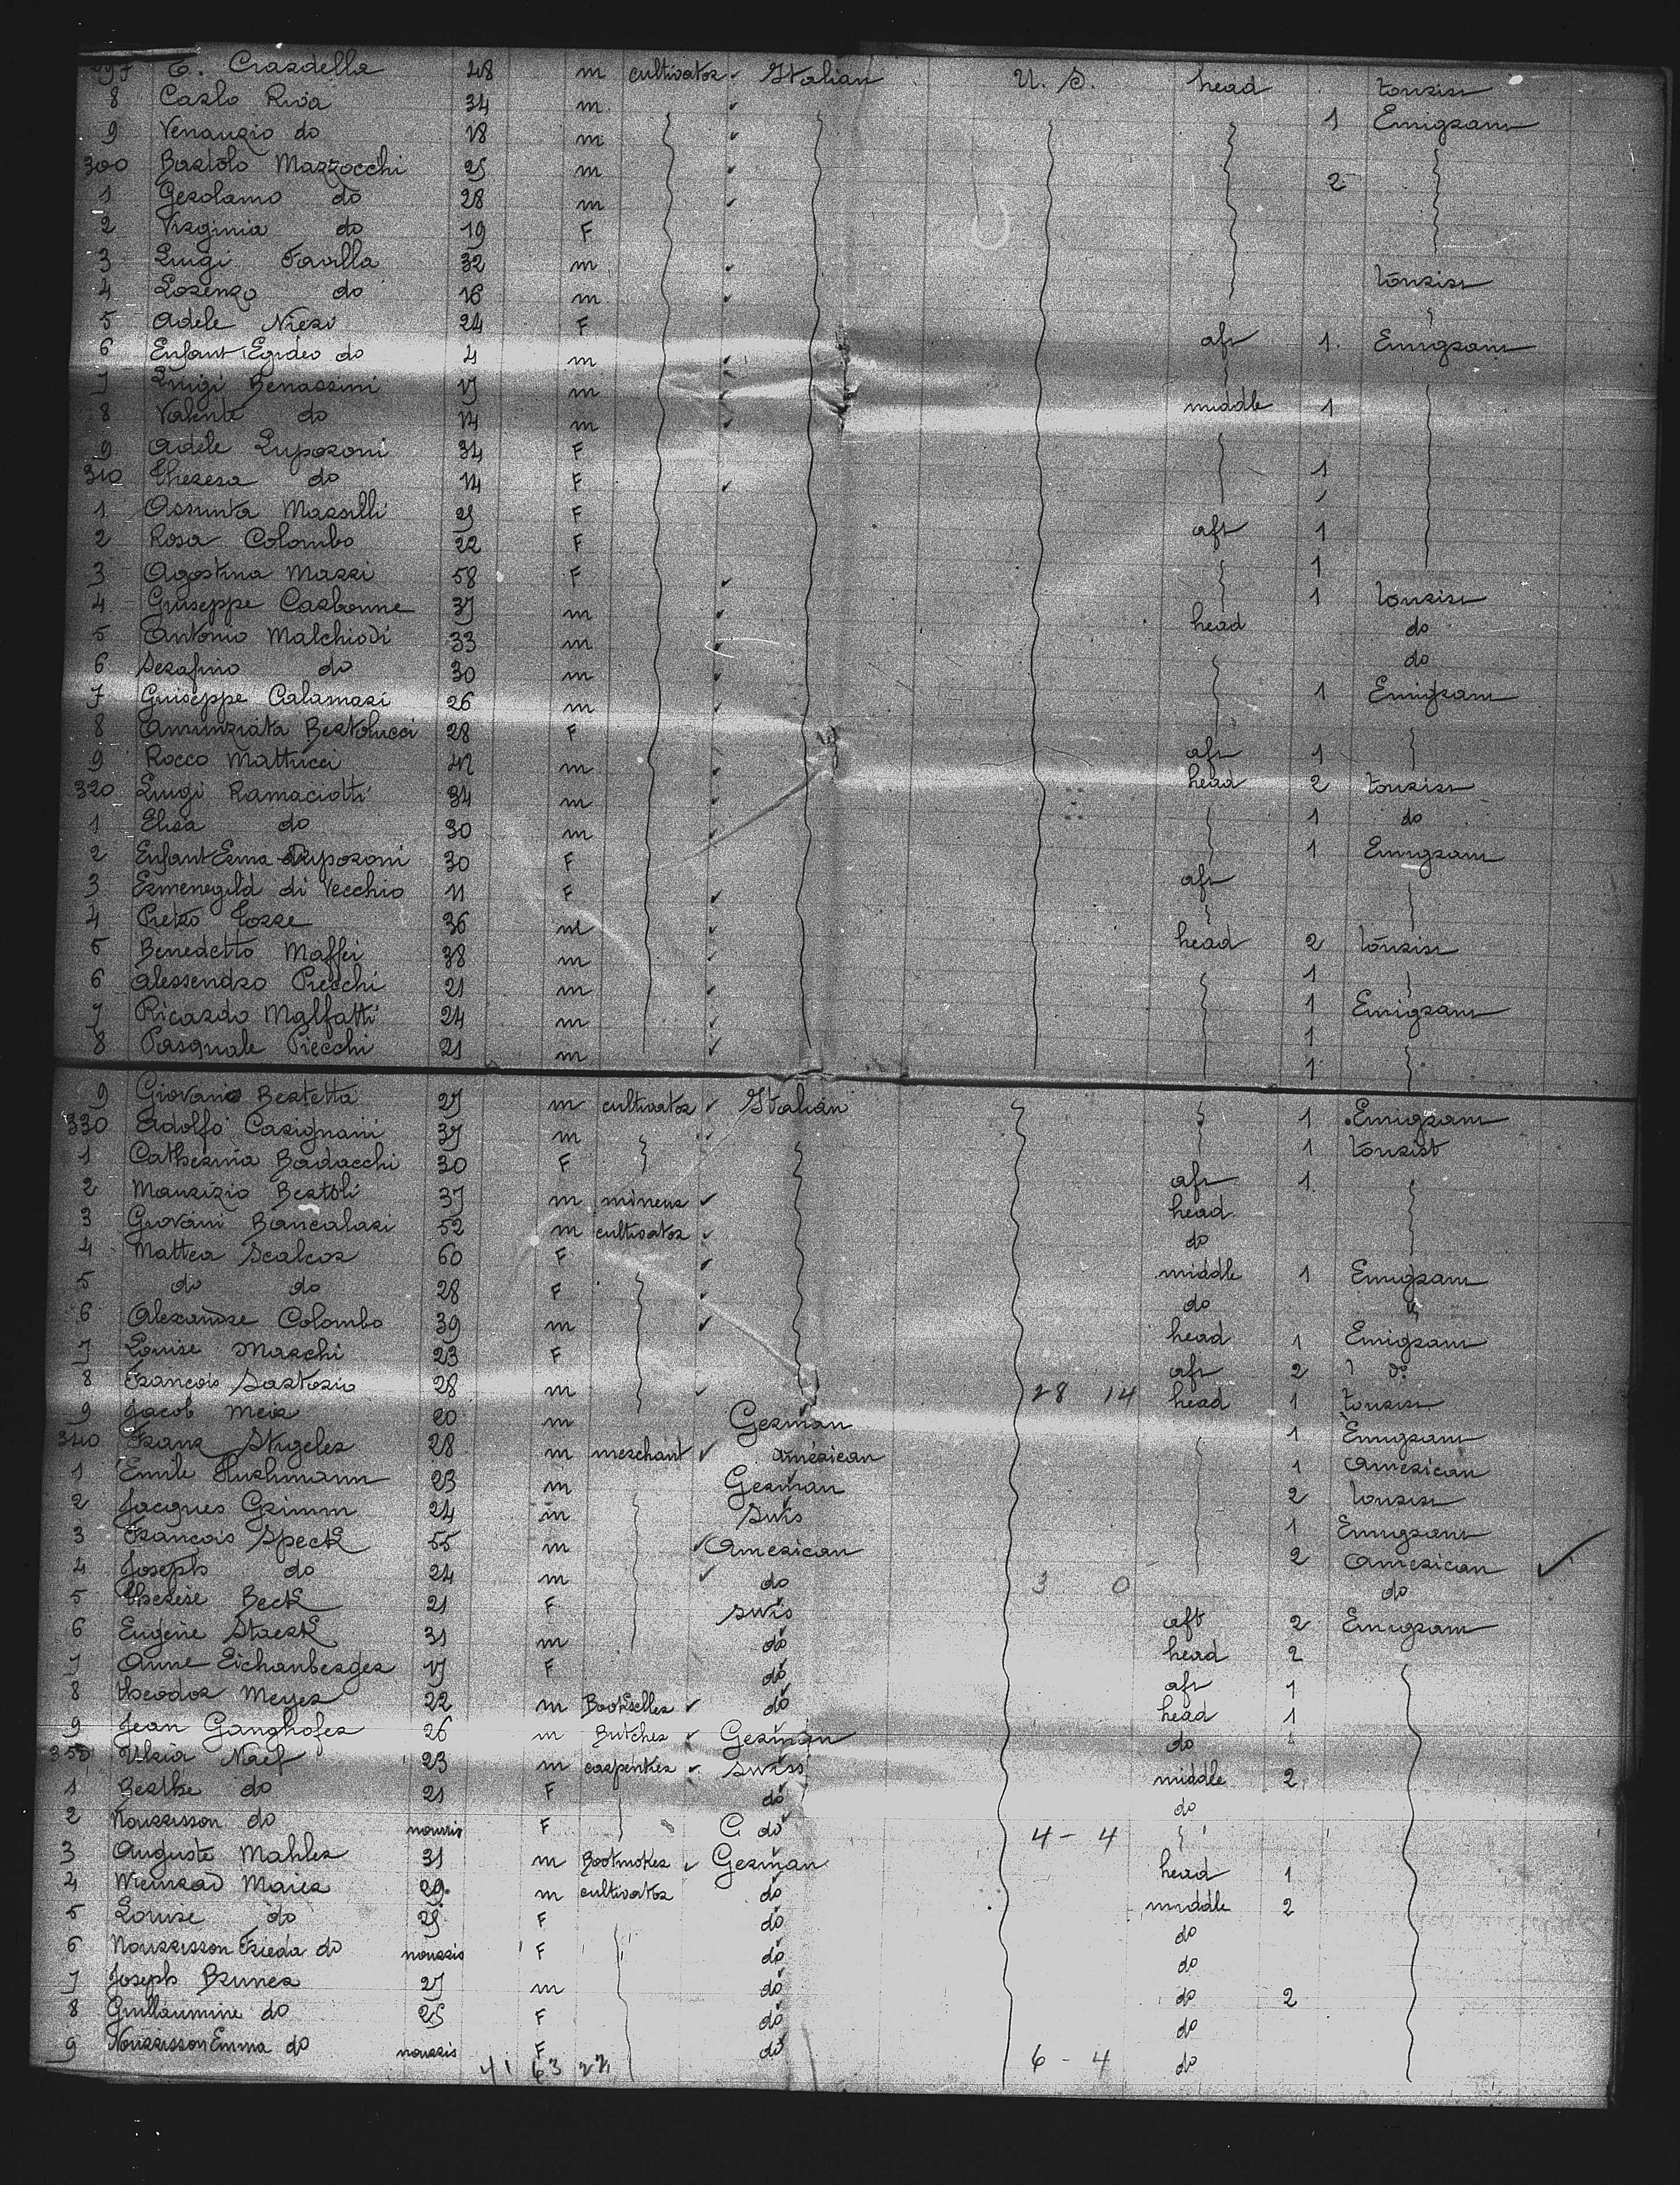 297 E. Crardella 48 m cultivator Italian U. S. head tourism
8 Carlo Riva 34 m 1 Emigram
9 Venanzio do 18 m
300 Bartolo Mazzocchi 25 m 2
1 Gerolamo do 28 m
2 Virginia do 19 F
3 Luigi Favilla 32 m tourism
4 Lorenzo do 16 m
5 Adele Nieri 24 F aft 1 Emigram
6 Enfant Egideo do 4 m
7 Luigi Benassini 17 m middle 1
8 Valente do 14 m
9 Adele Luporoni 34 F 1
310 Theresa do 14 F
1 Assunta Marsilli 25 F aft 1
2 Rosa Colombo 22 F 1
3 Agostina Marri 58 F 1 tourism
4 Giuseppe Carbonne 37 m head do
5 Antonio Malchiodi 33 m do
6 Serafino do 30 m 1 Emigram
7 Guiseppe Calamari 26 m
8 Annunziata Bertolucci 28 F aft 1
9 Rocco Mattucci 42 m head 2 tourism
320 Luigi Ramaciotti 34 m 1 do
1 Elisa do 30 m 1 Emigram
2 Enfant Erma Luporoni 30 F aft
3 Ermenegild di Vecchio 11 F
4 Pietro Torre 36 m head 2 tourism
5 Benedetto Maffei 38 m 1
6 Alessendro Precchi 21 m 1 Emigram
7 Ricardo Malfatti 24 m 1
8 Pasquale Precchi 21 m 1
9 Giovano Bertetta 27 m cultivator Italian 1 Emigram
330 Adolfo Carignani 37 m 1 tourist
1 Catherina Badacchi 30 F aft 1
2 Maurizio Bertoli 37 m mineur head
3 Giovani Bancalari 52 m cultivator do
4 Mattea Scalcor 60 F middle 1 Emigram
5 do do 28 F do
6 Alexandre Colombo 39 m head 1 Emigram
7 Louise Marchi 23 F aft 2 do
8 François Sartorio 28 m 28 14 head 1 tourism
9 Jacob Meir 20 m German 1 Emigram
340 Franz Stigeler 28 m merchant American 1 American
1 Emile Hushmann 23 m German 2 tourism
2 Jacques Grimm 24 m Swis 1 Emigram
3 François Speck 55 m American 2 American
4 Joseph do 24 m do 3 0 do
5 Therese Beck 21 F swis aft 2 Emigram
6 Eugène Staerk 31 m do head 2
7 Anne Eichanberger 17 F do aft 1
8 Theodor Meyer 22 m Bookseller do head 1
9 Jean Ganghofer 26 m Butcher German do 1
350 Ulria Naef 23 m carpenter swiss middle 2
1 Berthe do 21 F do do
2 Nourrisson do nourris F C do 4 - 4
3 Auguste Mahler 31 m Bootmoker German head 1
4 Wienrad Maier 29 m cultivator do middle 2
5 Louise do 25 F do do
6 Nourrisson Frieda do nourris F do do
7 Joseph Bruner 27 m do do 2
8 Guillaumine do 25 F do do
9 Nourrisson Emma do nourris F do 6 - 4 do
41 63 22